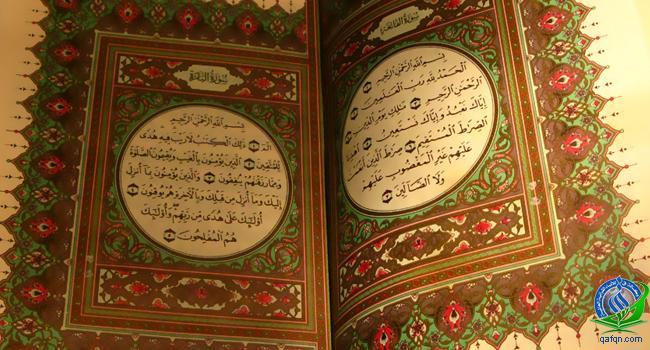 سورة الفاتحة
بسم الله الرحمن الرحيم
الحمد لله رب العلمين
الرحمن الرحيم ملك يوم الدين
إياك نعبد وإياك نستعين اهدنا
الصرط المستقيم صرط الذين أنعمت
عليهم غير المغضوب عليهم
ولا الضالين
سورة البقرة
بسم الله الرحمن الرحيم
الم ذلك الكتب لا ريب فيه هدى
للمتقين الذين يؤمنون بالغيب ويقيمون الصلوة
ومما رزقنهم ينفقون والذين يؤمنون بما أنزل
إليك وما أنزل من قبلك وبالآخرة هم يوقنون
أولئك على هدى من ربهم وأولئك
هم المفلحون
qafqn.com